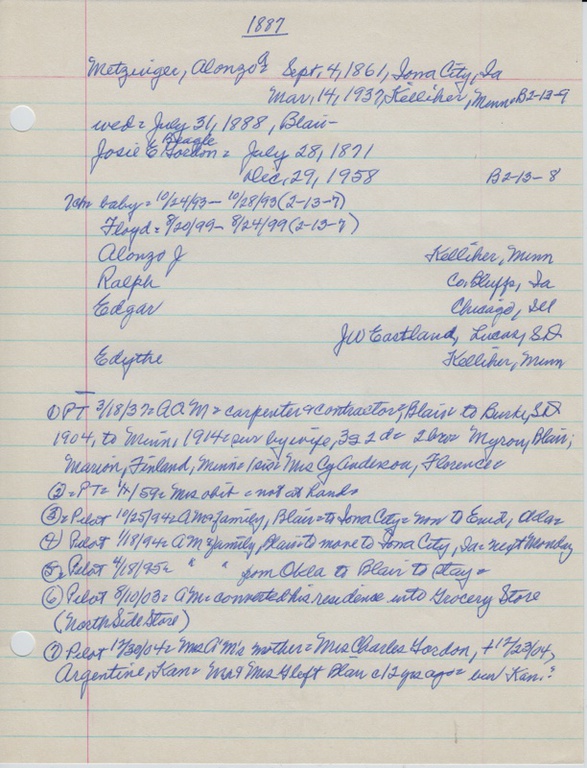 1887
Metzinger, Alonzo J= Sept. 4, 1861, Iona City, Ia
Mar. 14, 1937, Kelliher, Minn= B2-13-9
wed= July 31, 1888, Blair-
Beagle
Josie E Gordon= July 28, 1871
Dec. 29, 1958 B2-13-8
baby= 10/24/93- 10/28/93 (2-13-7)
Floyd= 8/20/99- 8/24/99 (2-13-7)
Alonzo J Kelliher, Minn
Ralph Co. Bluffs, Ia
Edgar Chicago, Ill
J W Eastland, Lucas, S.D.
Edythe Kelliher, Minn
① PT 3/18/37= A M= carpenter & contractor, Blair to Burke, S.D.
1904, to Minn, 1914= sur by wife, 3s 2d= 2 bro= Myron, Blair;
Marion, Finland, Minn= 1 sis= Mrs Cy Anderson, Florence=
②= PT= 1/1/59= Mrs obit= not at hand=
③= Pilot 10/25/94= AM=family, Blair= to Iona City= now to Enid, Okla=
④ Pilot 1/18/94= AM=family, Blair= to move to Iona City, Ia= next Monday
⑤= Pilot 4/18/95= " " from Okla to Blair to stay=
⑥ Pilot 8/10/03= AM= converted his residence into Grocery Store
(North Side Store)
⑦ Pilot 12/30/04= Mrs AM's mother= Mrs Charles Gordon, + 12/23/04,
Argentine, Kan= Mr & Mrs G left Blair c 12 yrs ago= bur Kan.